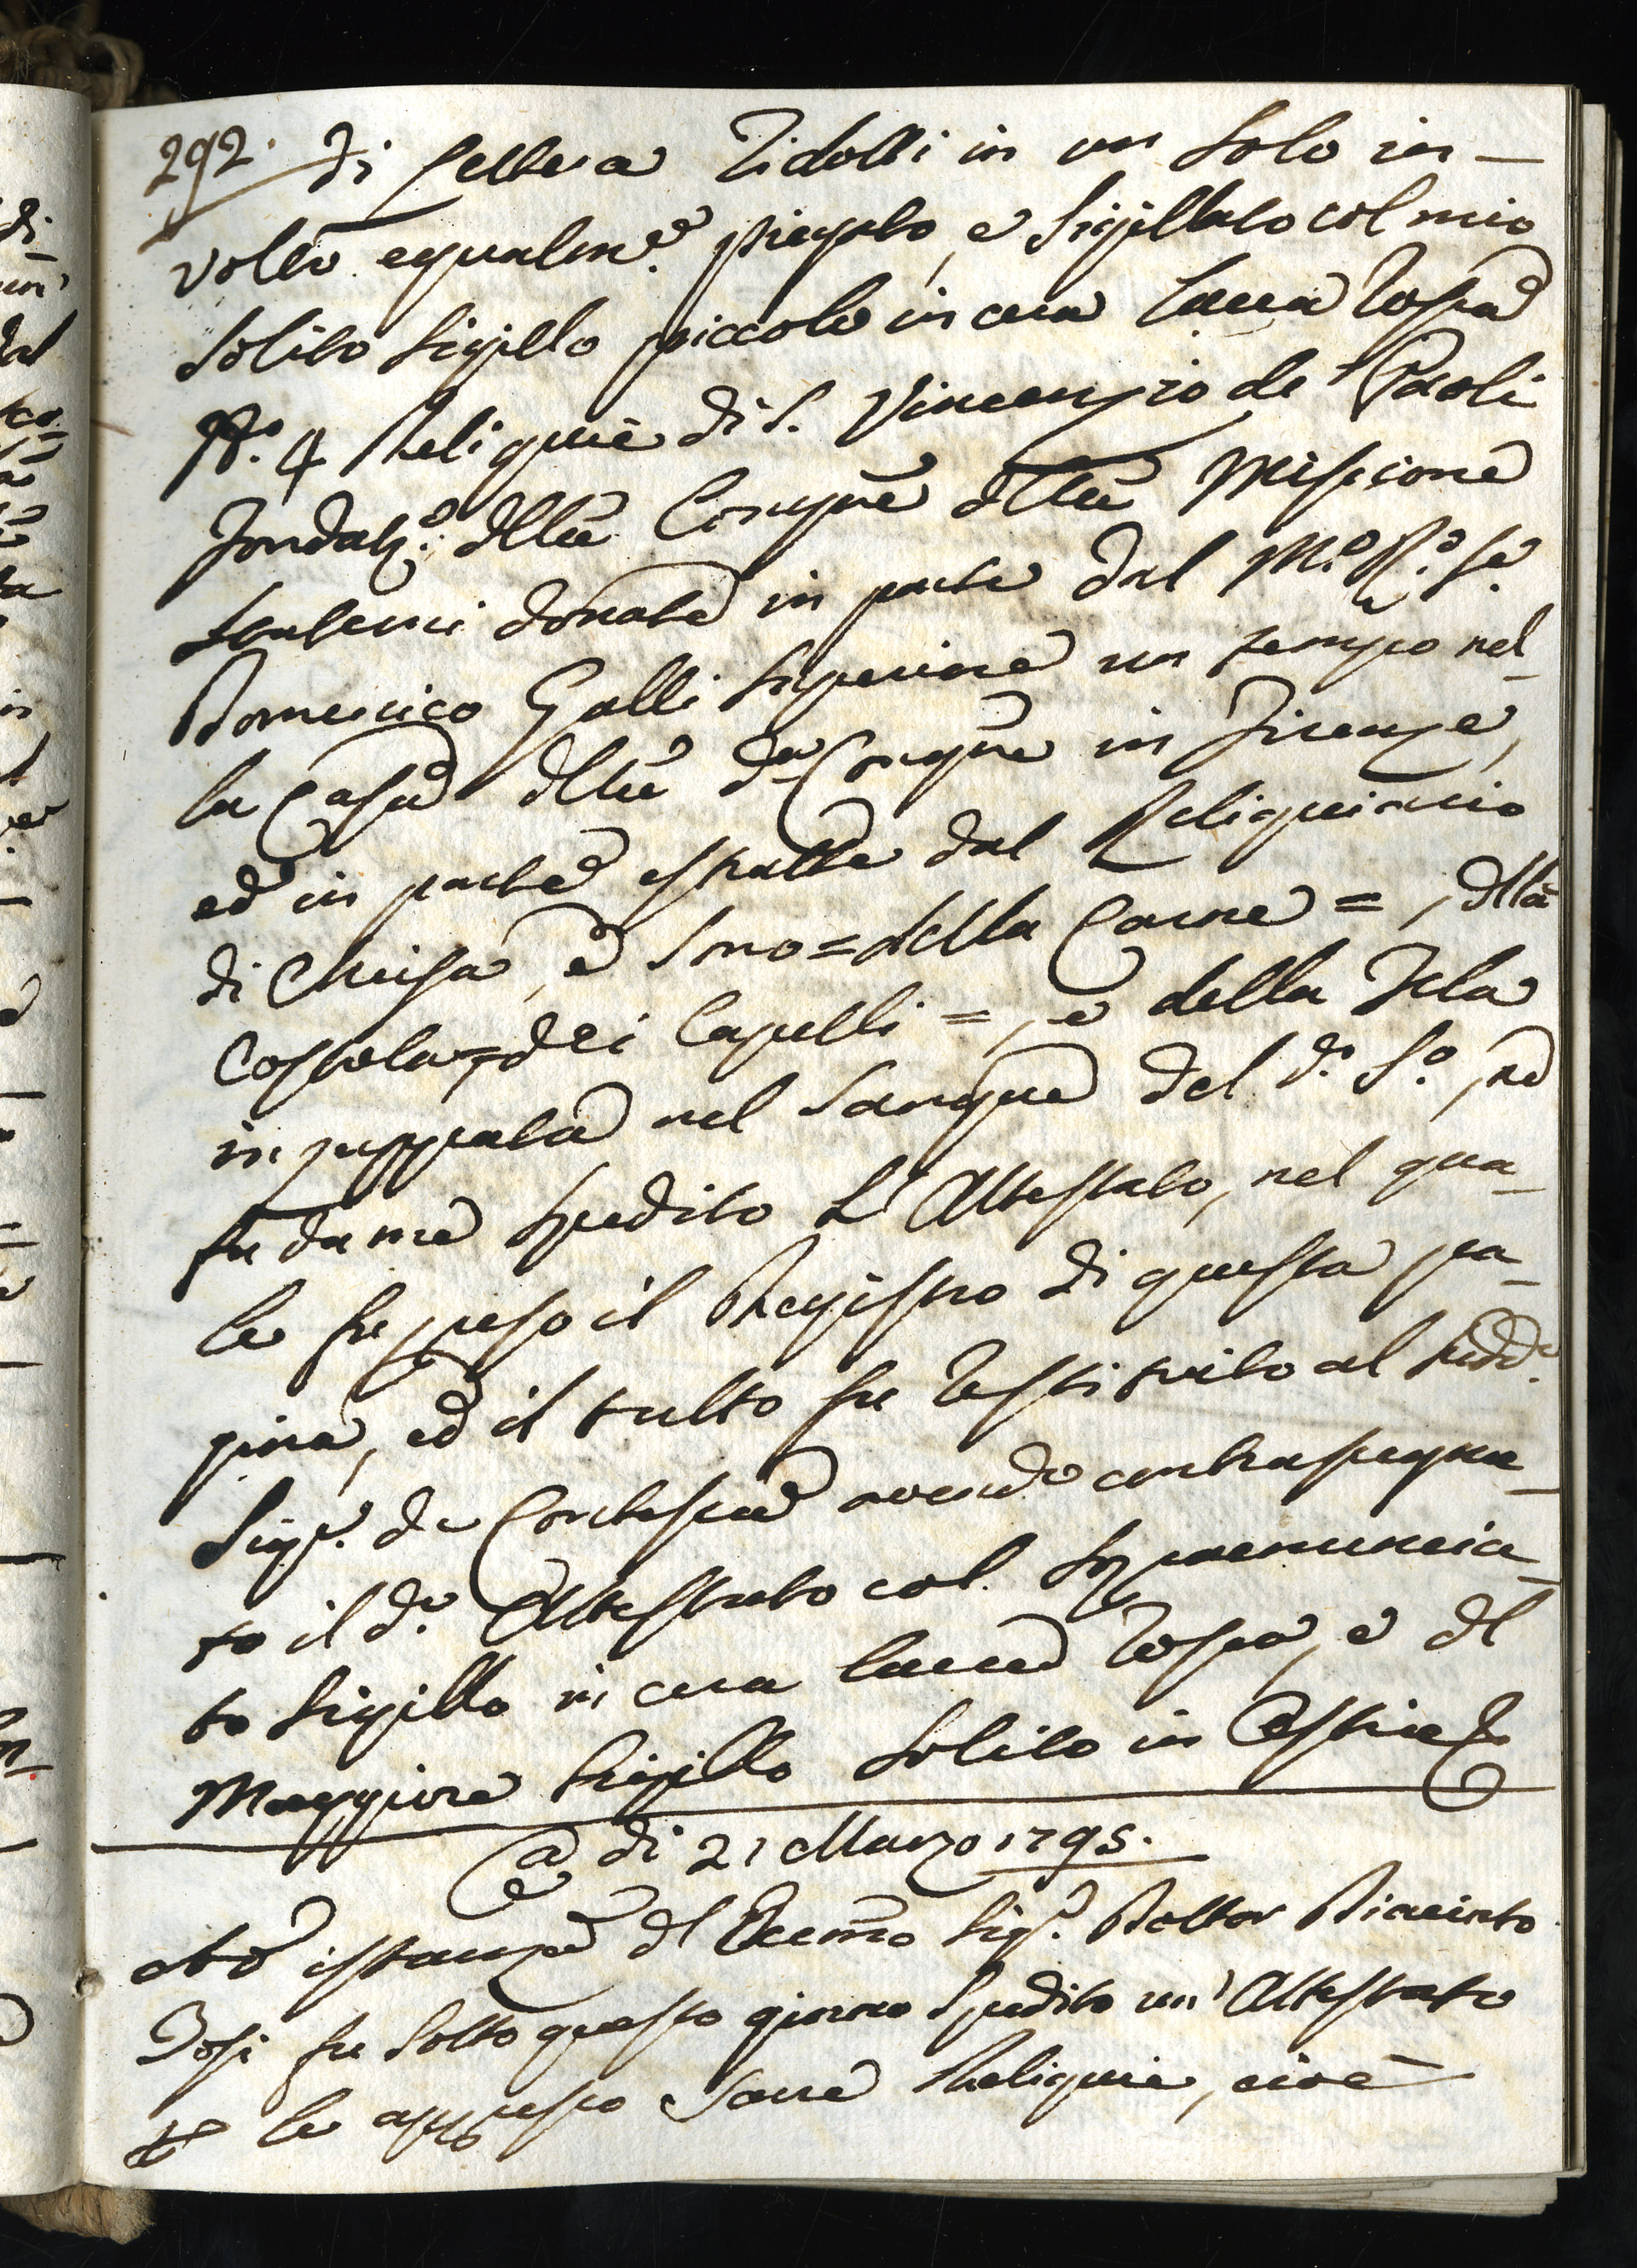 292. di Lettera ridotti in un solo in-
volto egualm.e piegato, e sigillato col mio
solito sigillo piccolo in cera lacca rossa
N.o 4 Reliquie di S. Vincenzio de' Paoli
Fondat.e dlla Congne dlla Missione
statemi donate in parte dal M.o R.o Sig.
Domenico Galli Superiore un tempo nel-
la Casa dlla da Congne in Firenze,
ed in parte estratte dal Reliquiario
di Chiesa, e sono = della Carne =, dlla
Costola =, dei Capelli =, e della Tela
inzuppata nel Sangue del do. So., ne
fu da me spedito l'Attestato, nel qua-
le fu preso il Registro di questa pa-
gina, ed il tutto fu restituito al sudd.o
Sigr. da Contessa avendo contrasegna-
to il do. Attestato col sopranuncia-
to sigillo in cera lacca rossa, e dl
Maggiore sigillo solito in Ostia
@ di 21 Marzo 1795.
Ad istanza dl Eccmo Sigr. Dottor Giacinto
Dosi fu sotto questo giorno spedito un' Attestato
le appresso Sacre Reliquie, cioè